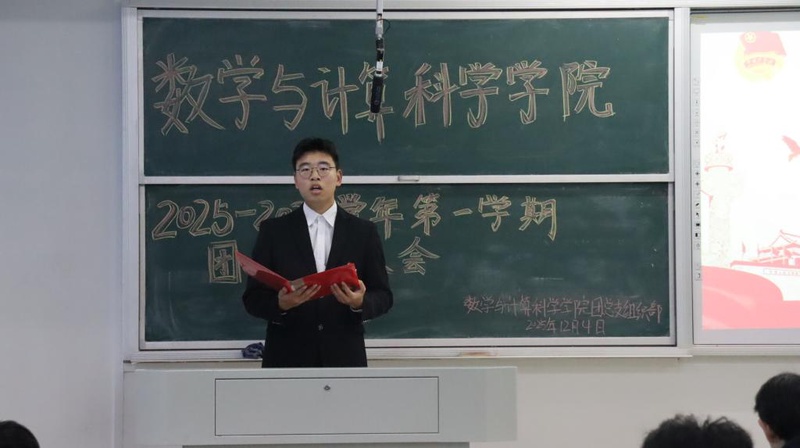 数学与计算科学学院
2025-20 学年第一学期
团 会
数学与计算科学学院团总支组织部
2025年12月4日